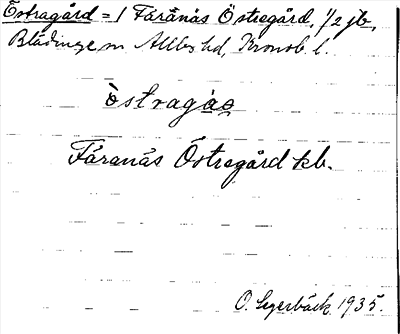 Östragård = 1 Fåranäs Östregård, 1/2 jb,
Blädinge sn Allbo hd, Kronob. l.
östragao
Fåranäs Östragård kb.
O. Segerbäck 1935.